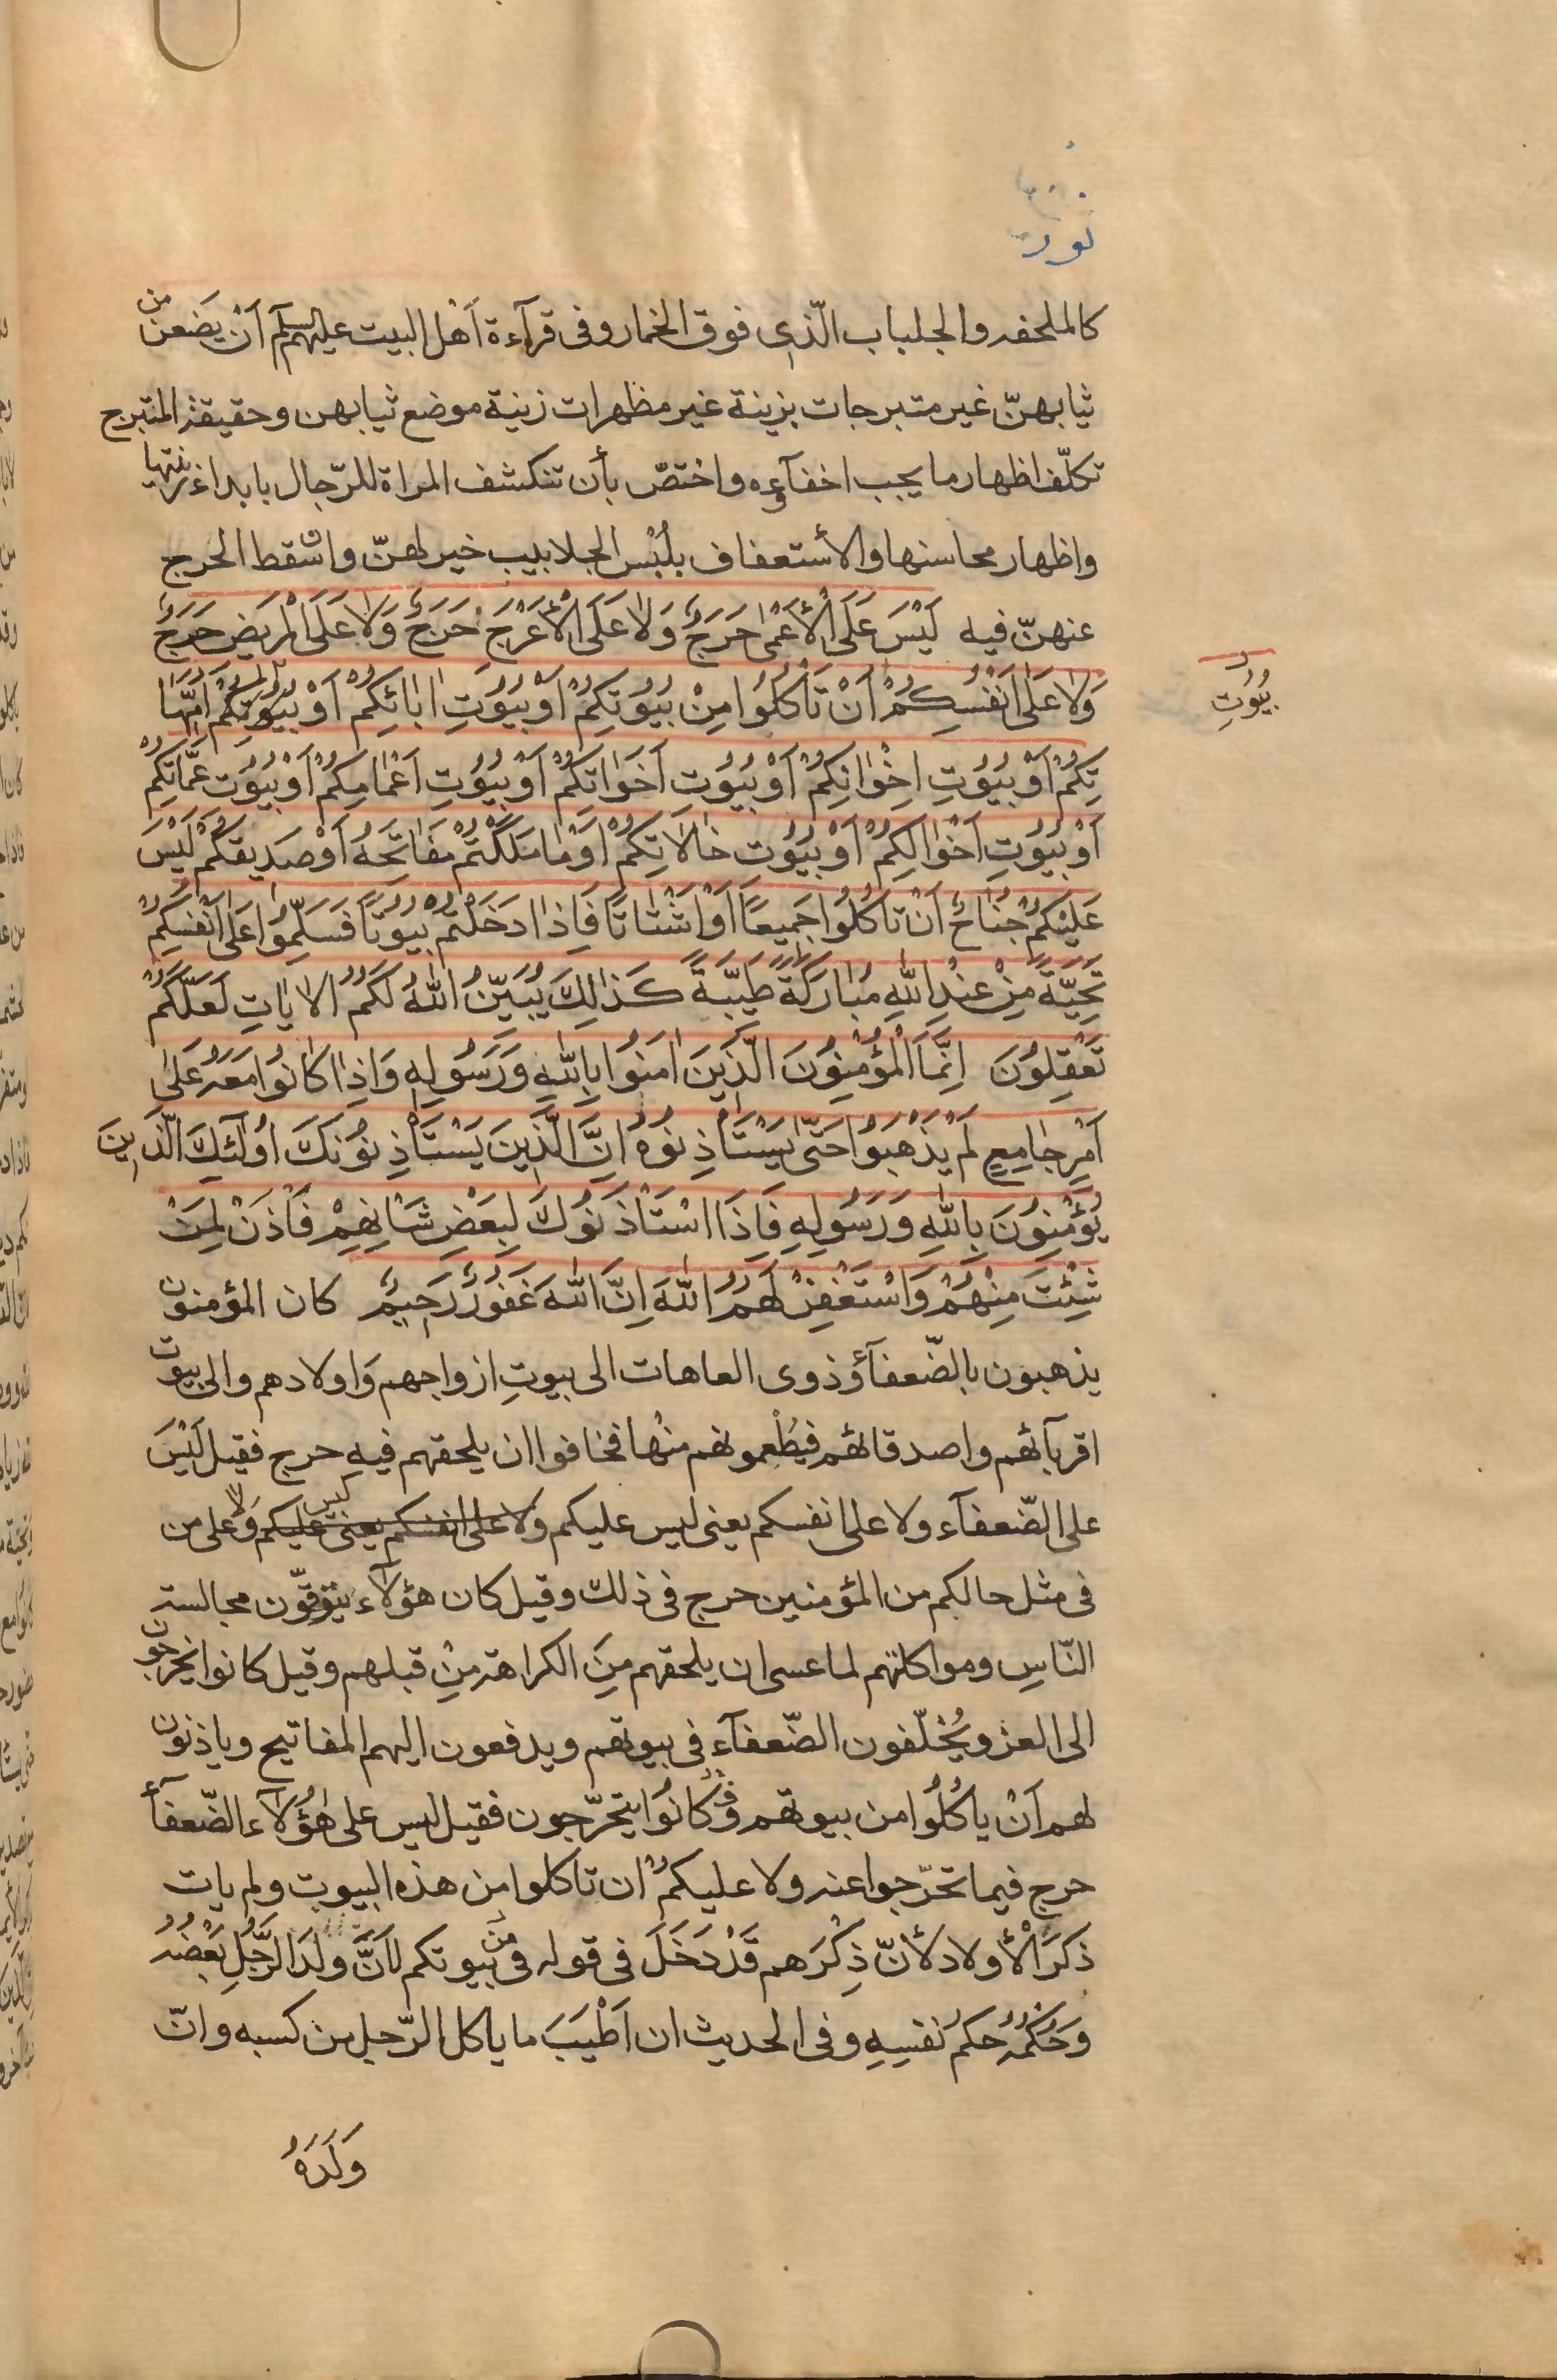 نور
كالملحفه والجلباب الّذى فوق الخمار وفى قرآءة اَهل البيت عليهم السلم اَنْ يَضعن من
ثيابهنّ غير متبرجات بزينة غير مظهرات زينة موضع ثيابهن وحقيقة المتبرج
تكلّف اظهار ما يجب اخفآءه واختصّ بأن تنكشف المراة للرّجال بابداء زينتها
واظهار محاسنها والأستعفاف بلُبْس الجلابيب خير لهنّ وان سقط الحَرج
عنهنّ فيه لَيْسَ عَلَى الْأَعْمٰى حَرَجٌ وَلاٰ عَلَى الْأَعْرَجِ حَرَجٌ وَلاٰ عَلَى الْمَريضِ حَرَجٌ
وَلاٰ عَلىٰ اَنْفُسِكُمْ اَنْ تَأكُلُوا مِنْ بُيُوتِكُمْ اَوْ بُيُوتِ اٰبائِكُمْ اَوْ بُيُوتِكُمْ اُمَّهٰا
بُيُوتِ
تِكُمْ اَوْ بُيُوتِ اِخْوٰانِكُمْ اَوْ بُيُوتِ اَخَوٰاتِكُمْ اَوْ بُيُوتِ اَعْمٰامِكُمْ اَوْ بُيُوتِ عَمّٰاتِكُمْ
اَوْ بُيُوتِ اَخْوٰالِكُمْ اَوْ بُيُوتِ خٰالاٰتِكُمْ اَوْ مٰا مَلَكْتُمْ مَفٰاتِحَهُ اَوْ صَديقِكُمْ لَيْسَ
عَلَيْكُمْ جُنٰاحٌ اَنْ تَأكُلُوا جَميعًا اَوْ اَشْتٰاتًا فَاِذٰا دَخَلْتُمْ بُيُوتًا فَسَلِّمُوا عَلىٰ اَنْفُسِكُمْ
تَحِيَّةً مِنْ عِنْدِ اللّٰهِ مُبٰارَكَةً طَيِّبَةً كَذٰلِكَ يُبَيِّنُ اللّٰهُ لَكُمُ الاٰيٰاتِ لَعَلَّكُمْ
تَعْقِلُونَ اِنَّمَا الْمُؤْمِنُونَ الَّذينَ اٰمَنُوا بِاللّٰهِ وَرَسُولِهِ وَاِذٰا كٰانُوا مَعَهُ عَلىٰ
اَمْرٍ جٰامِعٍ لَمْ يَذْهَبُوا حَتّىٰ يَسْتَأْذِنُوهُ اِنَّ الَّذينَ يَسْتَأْذِنُونَكَ اُولٰئِكَ الَّذينَ
يُؤْمِنُونَ بِاللّٰهِ وَرَسُولِهِ فَاِذَا اسْتَأْذَنُوكَ لِبَعْضِ شَأنِهِمْ فَأْذَنْ لِمَنْ
شِئْتَ مِنْهُمْ وَاسْتَغْفِرْ لَهُمُ اللّٰهَ اِنَّ اللّٰهَ غَفُورٌ رَحيمٌ كان المؤمنون
يذهبون بالضّعفآء وذوى العاهات الى بيوتِ ازواجهم وَاولادهم والى بيوت
اقربآئهم واصدقائهم فيُطْعمونهم منْها فخافوا ان يلحقهم فيهِ حرج فقيل لَيْسَ
على الضّعفآء ولا على انفسكم يعنى ليس عليكم ولا على انفسكم يعنى ليس عليكم وَلا على من
فى مثل حالكم من المؤمنين حرج فى ذلك وقيل كان هؤلآء يتوقّون مجالسة
النّاسِ ومواكلتهم لما عسى ان يلحقهم مِنَ الكراهة مِنْ قبلهم وقيل كانوا يخرجون
الى الغز ويُخلّفون الضّعفآء فى بيوتهم ويدفعون اليهم المفاتيح وياذنون
لهم اَنْ ياكُلُوا من بيوتهم وَكانُوا يتحرّجون فقيل ليس على هٰؤُلآءِ الضّعفآء
حرج فيما تحرّجوا عنه ولا عليكمْ ان تاكلوا مِن هذه البيوت ولم يات
ذكرَ الْأَولاد لأنّ ذِكْرَهم قَدْ دَخَلَ فى قوله فى مِنْ بيوتكم لاَنَّ ولَدَ الرَّجُلِ بَعْضُهُ
وَحُكمُهُ حكمُ نفسِهِ وفى الحديث ان اَطْيَبَ ما ياكل الرّجل من كسبه وانّ
وَلَدَهُ